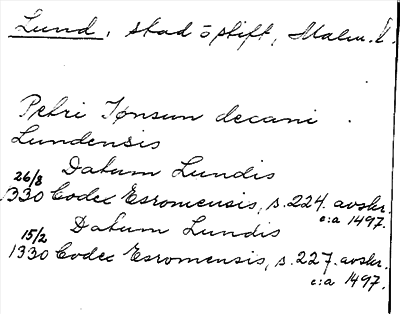 Lund, stad o stift, Malm. l.
Petri Jonsun decani
Lundensis
Datum Lundis
26/8
1330 Codex Esromensis, s. 224. avskr.
c:a 1497.
Datum Lundis
15/2
1330 Codex Esromensis, s. 227. avskr.
c:a 1497.